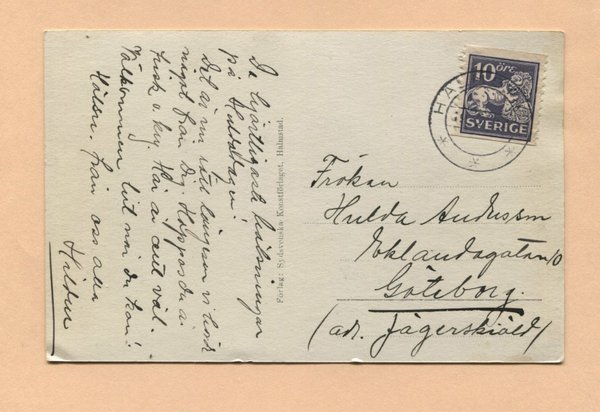 De hjärtligaste hälsningar
på Huldadagen!
Det är nu rätt längesen vi hörde
något från Dig. Hoppas du är
frisk o kry. Här är allt väl.
Välkommen hit när du kan!
Hälsn. från oss alla
Förlag: Sydsvenska Konstförlaget, Halmstad.
10 ÖRE
SVERIGE
HAL
Fröken
Hulda Andersson
Eklandagatan 10
Göteborg.
(adr. Jägerskiöld)